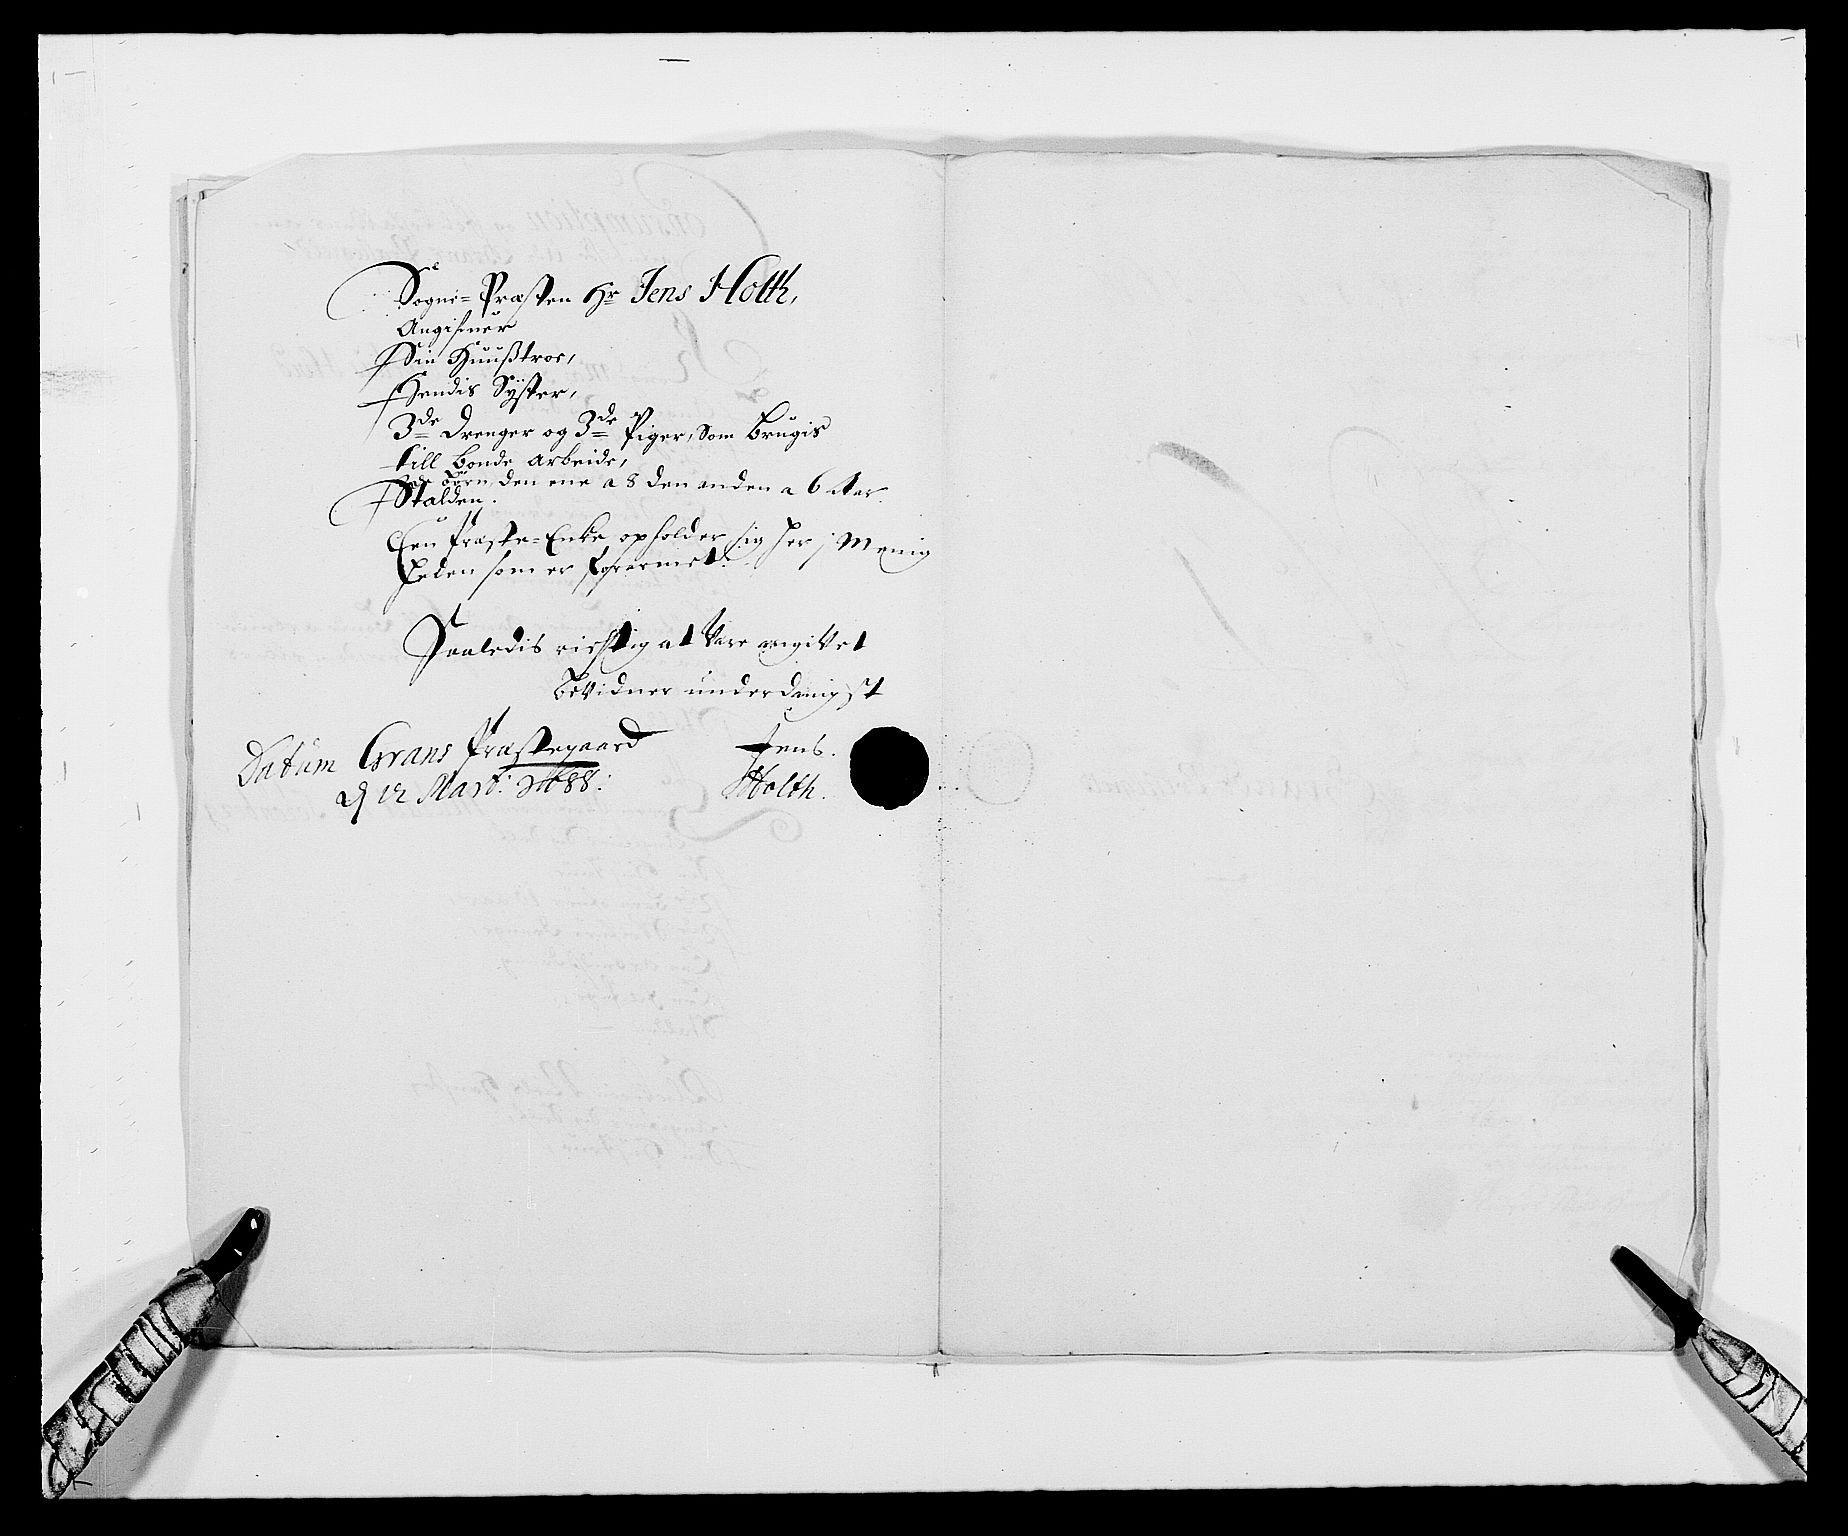 Sogne-Præsten Hr Jens Holth,
Angifuer
Sin Huußtroe,
Hendis Syster,
3de Drenger og 3de Piger, Som Brugis
till Bonde Arbeide,
2de Børn, den ene a 8 den anden a 6 Aar
Stalden.
Een Præste-Enke opholder sig her j Menig
heden som er forarmet.
Saaledis richtig at være angivet
betidner underdanigst
Datum Grans Præstegaard
d 12 Mart: 1688:
Jens.
Holth.